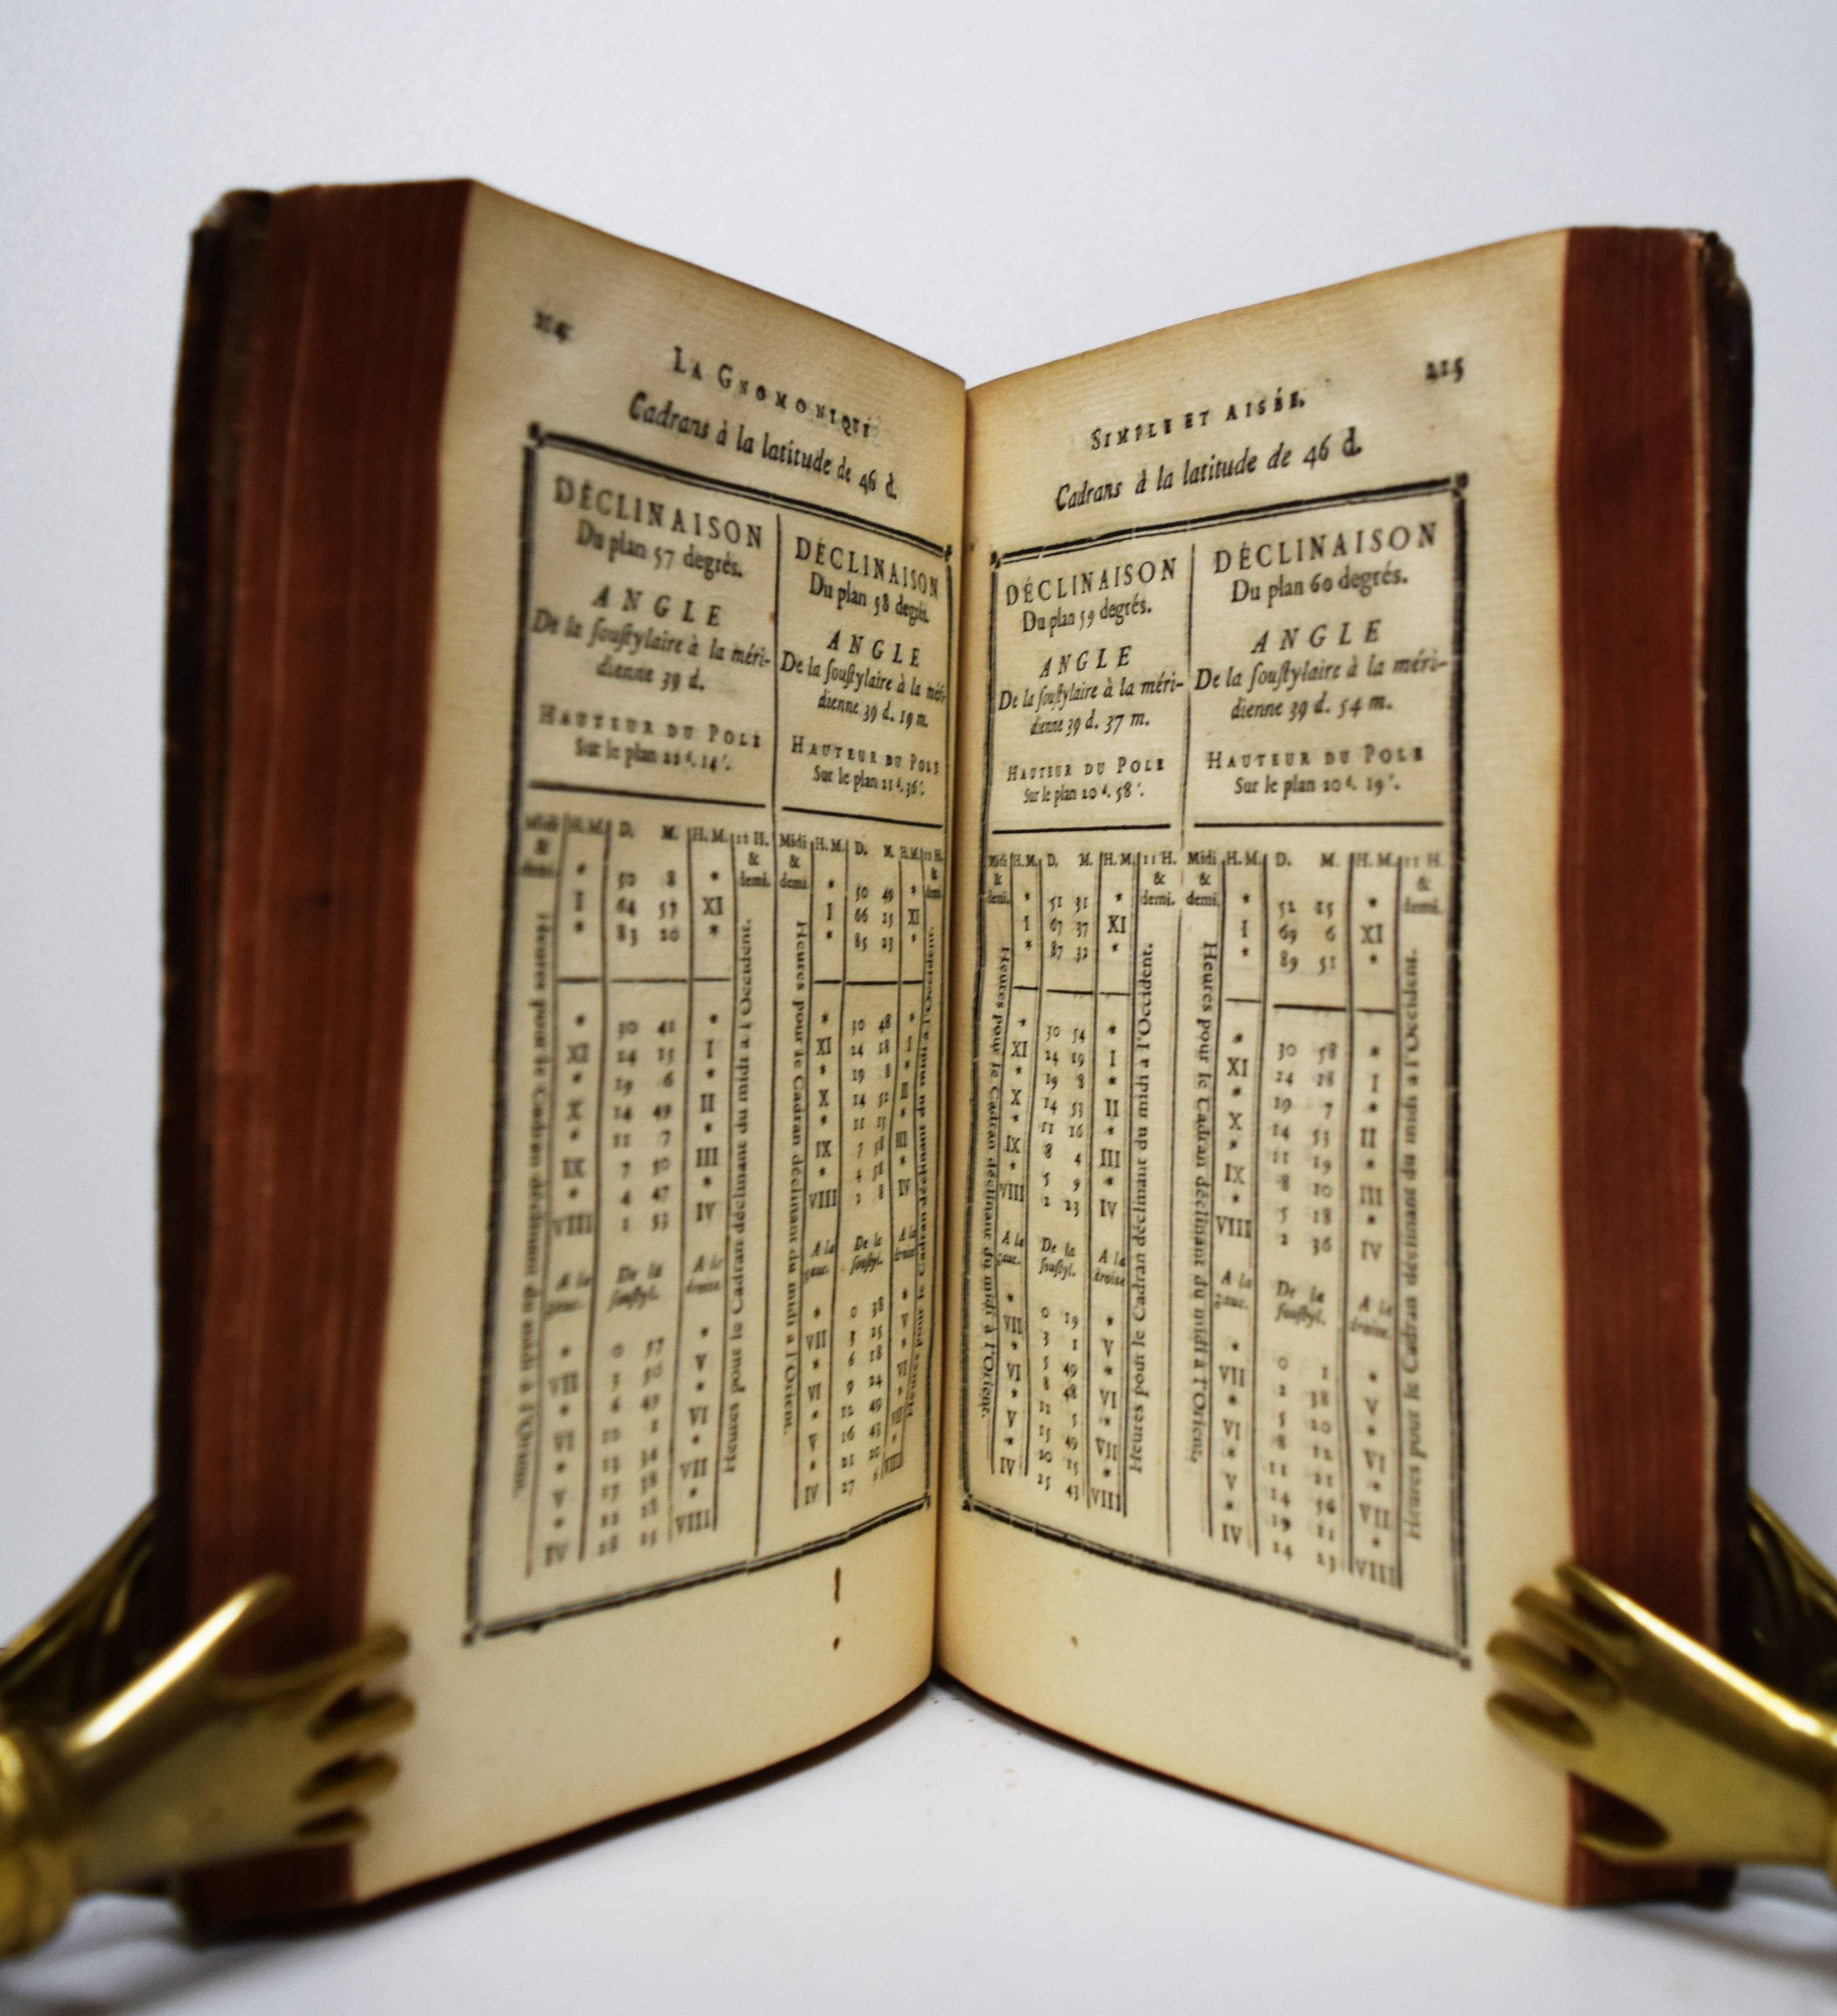 LA GNOMONIQUE
Cadrans à la latitude de 46 d.
DÉCLINAISON
Du plan 57 degrés.
ANGLE
De la souſtylaire à la méri-
dienne 39 d.
HAUTEUR DU POLE
Sur le plan 22 d. 14'.
Midi & demi. H. M. D. M. H. M. 11 H. & demi.
* 50 8 *
I 64 57 XI
* 83 20 *
* 30 41 *
XI 24 15 I
* 19 6 *
X 14 49 II
* 11 7 *
IX 7 50 III
* 4 47 *
VIII 1 53 IV
A la gauc. De la souſtyl. A la droite
* 0 57 *
VII 3 50 V
* 6 49 *
VI 10 1 VI
* 13 34 *
V 17 38 VII
* 22 28 *
IV 28 25 VIII
Heures pour le Cadran déclinant du midi à l'Orient.
Heures pour le Cadran déclinant du midi a l'Occident.
DÉCLINAISON
Du plan 58 degrés.
ANGLE
De la souſtylaire à la méri-
dienne 39 d. 19 m.
HAUTEUR DU POLE
Sur le plan 21 d. 36'.
Midi & demi. H. M. D. M. H. M. 11 H. & demi.
* 50 49 *
I 66 15 XI
* 85 23 *
* 30 48 *
XI 24 18 I
* 19 8 *
X 14 52 II
* 11 13 *
IX 7 58 III
* 4 58 *
VIII 2 8 IV
A la gauc. De la souſtyl. A la droite
* 0 38 *
VII 3 25 V
* 6 18 *
VI 9 24 VI
* 12 49 *
V 16 43 VII
* 21 20 *
IV 27 6 VIII
Heures pour le Cadran déclinant du midi a l'Orient.
Heures pour le Cadran déclinant du midi a l'Occident.
215
SIMPLE ET AISÉE.
Cadrans à la latitude de 46 d.
DÉCLINAISON
Du plan 59 degrés.
ANGLE
De la souſtylaire à la méri-
dienne 39 d. 37 m.
HAUTEUR DU POLE
Sur le plan 20 d. 58'.
Midi & demi. H. M. D. M. H. M. 11 H. & demi.
* 51 31 *
I 67 37 XI
* 87 32 *
* 30 54 *
XI 24 19 I
* 19 8 *
X 14 53 II
* 11 16 *
IX 8 4 III
* 5 9 *
VIII 2 23 IV
A la gauc. De la souſtyl. A la droite
* 0 19 *
VII 3 1 V
* 5 49 *
VI 8 48 VI
* 12 5 *
V 15 49 VII
* 20 15 *
IV 25 43 VIII
Heures pour le Cadran déclinant du midi à l'Orient.
Heures pour le Cadran déclinant du midi a l'Occident.
DÉCLINAISON
Du plan 60 degrés.
ANGLE
De la souſtylaire à la méri-
dienne 39 d. 54 m.
HAUTEUR DU POLE
Sur le plan 20 d. 19'.
Midi & demi. H. M. D. M. H. M. 11 H. & demi.
* 52 15 *
I 69 6 XI
* 89 51 *
* 30 58 *
XI 24 18 I
* 19 7 *
X 14 53 II
* 11 19 *
IX 8 10 III
* 5 18 *
VIII 2 36 IV
A la gauc. De la souſtyl. A la droite.
* 0 1 *
VII 2 38 V
* 5 20 *
VI 8 12 VI
* 11 21 *
V 14 56 VII
* 19 11 *
IV 24 23 VIII
Heures pour le Cadran déclinant du midi à l'Orient.
Heures pour le Cadran déclinant du midi a l'Occident.